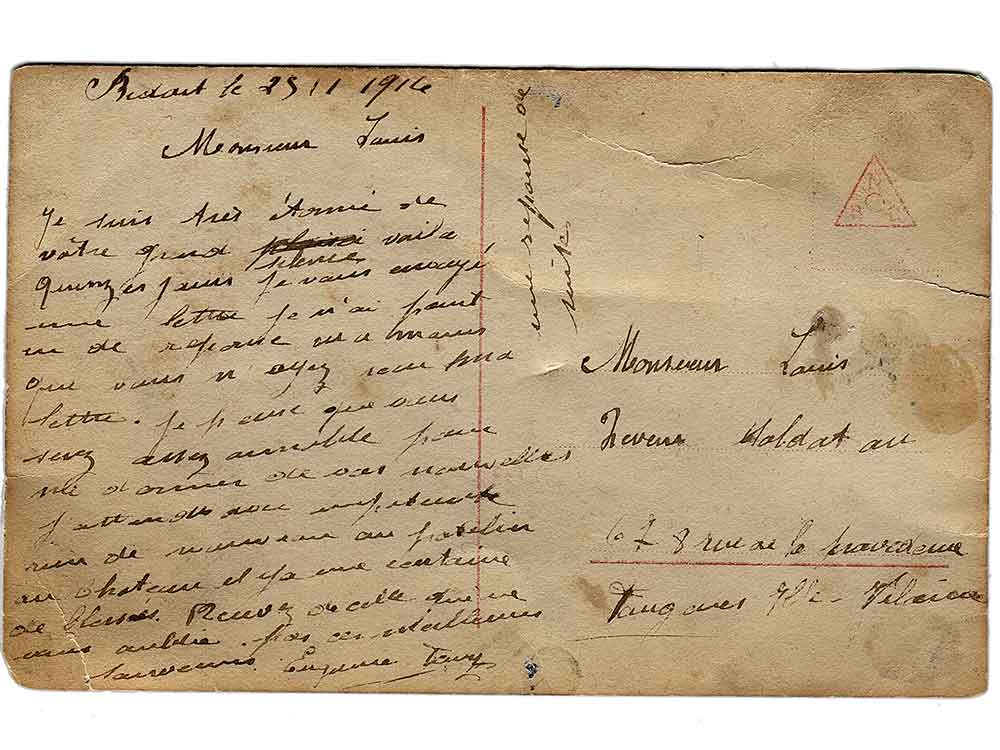 le 25 11 1914
Monsieur Louis
Je suis très étonné de
vôtre grand silence voila
quinzes jours je vous envoyé
une lettre je n'ai point
u de reponse
que vous n'ayez ma
lettre. Je pense que vous
serez assez aimable pour
me donner de vos nouvelles
J'attends avec
rien de nouveau au patelin
au Chateau il y a une centaine
de blessés. Recevez de celle que ne
vous oublie pas ces meilleures
souvenirs Eugenie
une reponse de
suite
Monsieur Louis
Soldat au
8 rue de la
Ille-Vilaine